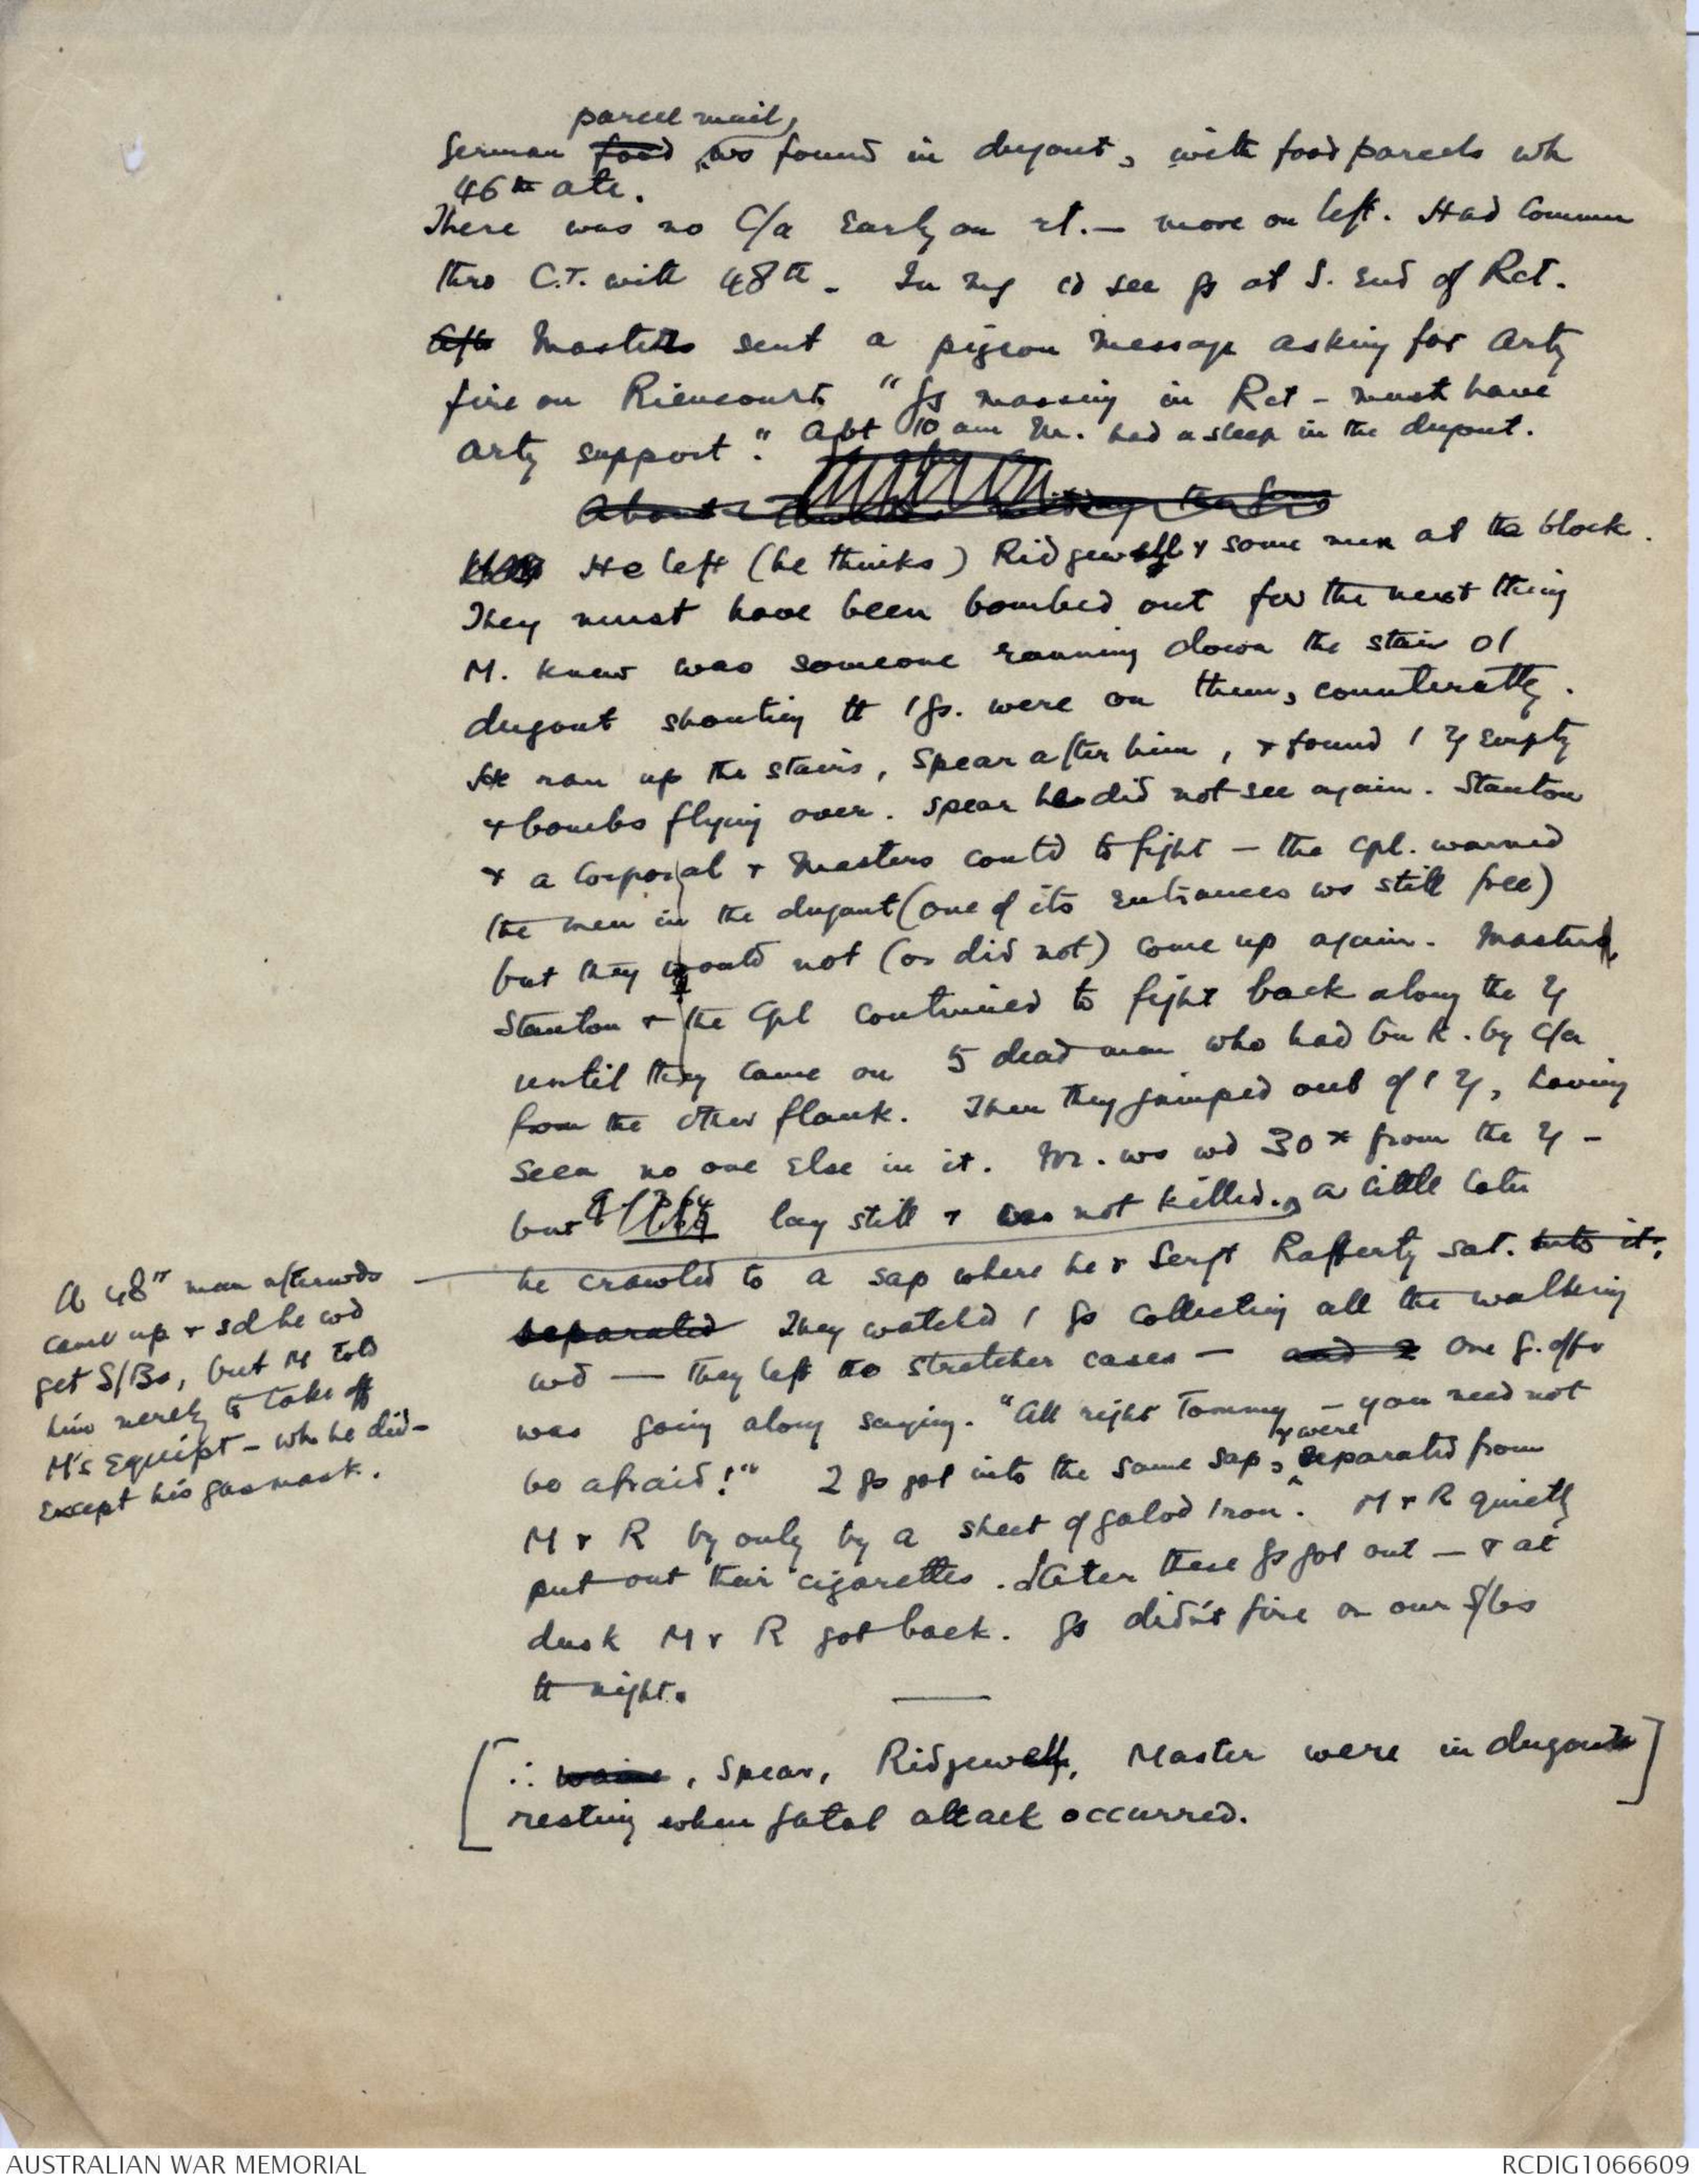 parcel mail,
German food ws found in dugout, with food parcels wh
46th ate.
There was no C/a early on rt. — more on left. Had commn
thro C.T. with 48th. In mg cd see Gs at S. end of Rct.
Aft Masters sent a pigeon message asking for arty
fire on Riencourt "Gs massing in Rct - must have
arty support." Abt 10 am M. had a sleep in the dugout.
About
He left (he thinks) Ridgewell & some men at the block.
They must have been bombed out for the next thing
M. knew was someone running down the stair of
dugout shouting tt / Gs. were on them, counterattg.
He ran up the stairs, Spear after him, & found / Y empty
& bombs flying over. Spear he did not see again. Stanton
& a Corporal & Masters contd to fight — the Cpl. warned
the men in the dugout (one of its entrances ws still free)
but they would not (or did not) come up again. Masters,
Stanton & the Cpl continued to fight back along the Y
until they came on 5 dead men who had bn k. by C/a
from the other flank. Then they jumped out of / Y, having
seen no one else in it. M. ws wd 30x from the Y -
but lay still & was not killed. A little later
he crawled to a sap where he & Sergt Rafferty sat. into it,
separated They watched / Gs collecting all the walking
wd — they left to stretcher cases — and 2 One G. offr
was going along saying. "All right Tommy — you need not
be afraid!" 2 Gs got into the same sap, & were separated from
M & R by only by a sheet of galvd iron. M & R quietly
put out their cigarettes. Later these Gs got out — & at
dusk M & R got back. Gs didn't fire on our S/bs
tt night.
A 48th man afterwds
came up & sd he wd
get S/Bs, but M told
him merely to take off
M's equipt - wh he did -
except his gasmask.
[∴ , Spear, Ridgewell, Master were in dugout
resting when fatal attack occurred.]
AUSTRALIAN WAR MEMORIAL
RCDIG1066609